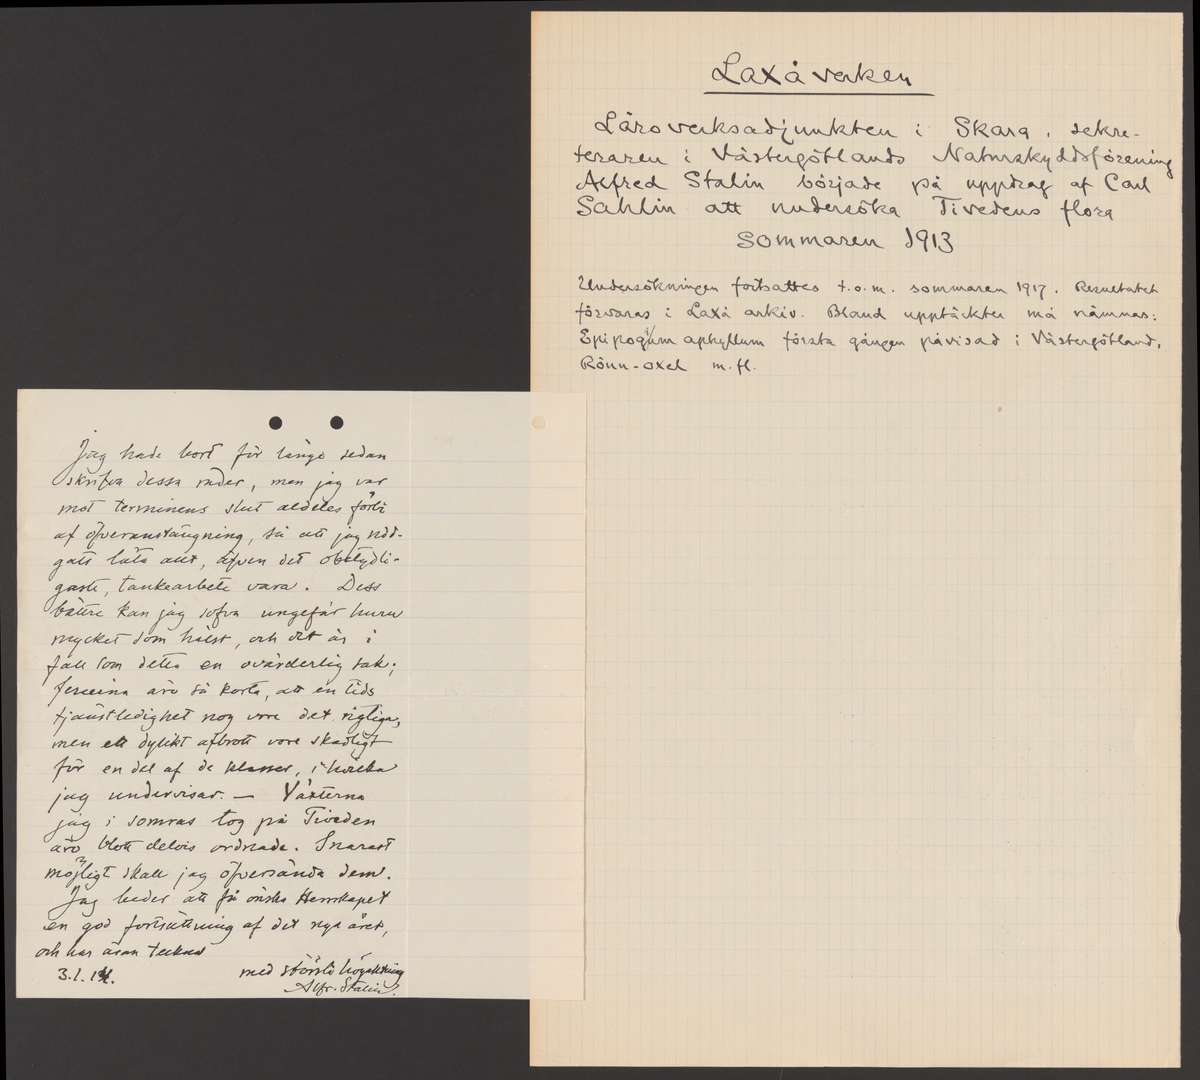 Laxåverken
Läroverksadjunkten i Skara, sekre-
teraren i Västergötlands Naturskyddsförening
Alfred Stalin började på uppdrag af Carl
Sahlin att undersöka Tivedens flora
sommaren 1913
Undersökningen fortsattes t.o.m. sommaren 1917. Resultatet
förvaras i Laxå arkiv. Bland upptäckter må nämnas:
Epipogium aphyllum första gången påvisad i Västergötland,
Rönn-oxel m.fl.
Jag hade bort för länge sedan
skrifva dessa rader, men jag var
mot terminens slut alldeles förbi
af öfveransträngning, så att jag nöd-
gats låta allt, äfven det obetydli-
gaste, tankearbete vara. Dess
bättre kan jag sofva ungefär huru
mycket som hälst, och det är i
fall som detta en ovärderlig sak;
ferierna äro så korta, att en tids
tjänstledighet nog vore det rigtiga,
men ett dylikt afbrott vore skadligt
för en del af de klasser, i hvilka
jag undervisar. — Växterna
jag i somras tog på Tiveden
äro blott delvis ordnade. Snarast
möjligt skall jag öfversända dem.
Jag beder att få önska Herrskapet
en god fortsättning af det nya året,
och har äran teckna
med största högaktning
3.1.14.
Alfr. Stalin.